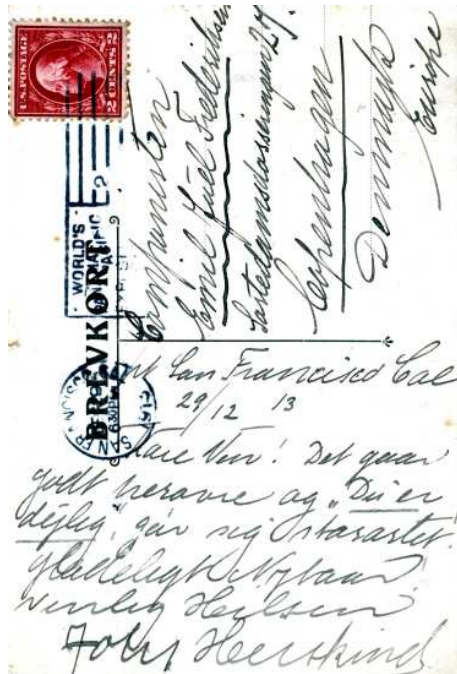 U.S. POSTAGE
2 CENTS 2
WORLD'S
BREVKORT
SAN FRANCISCO
630PM
Componisten
Emil Juel Frederiksen
Sortedamsdosseringen 27.
Copenhagen
Denmark
Europe
San Francisco Cal
29/12 13
Kære Ven! Det gaar
godt herovre og "Du er
dejlig" gør sig
Glædeligt Nytaar!
Venlig Heilsen
John Herskind